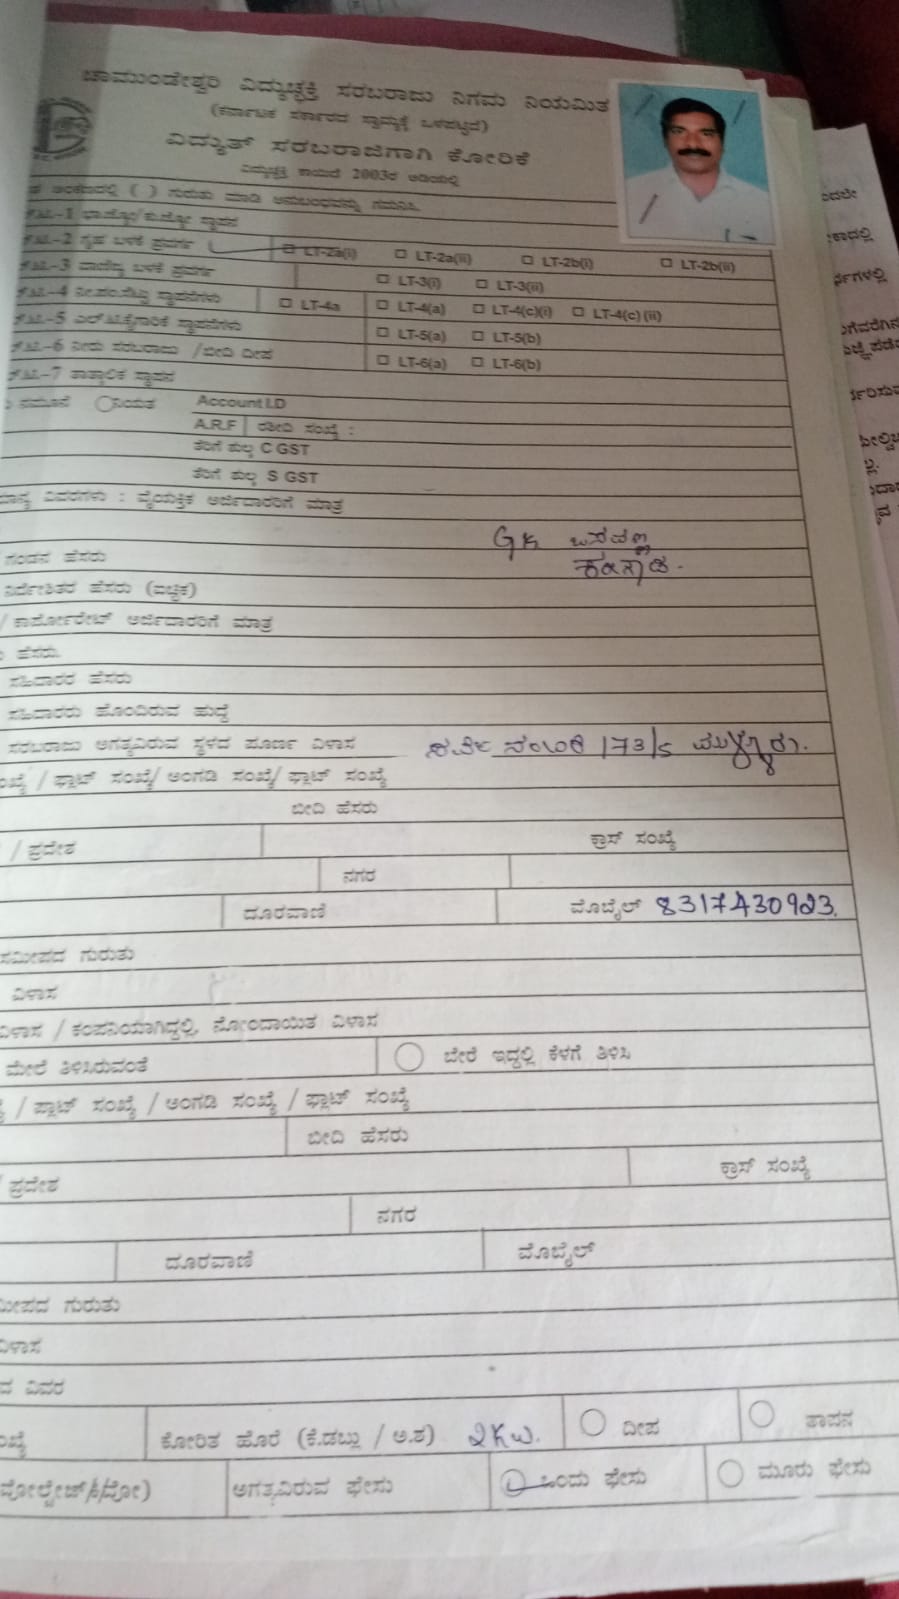 ಚಾಮುಂಡೇಶ್ವರಿ ವಿದ್ಯುಚ್ಛಕ್ತಿ ಸರಬರಾಜು ನಿಗಮ ನಿಯಮಿತ
(ಕರ್ನಾಟಕ ಸರ್ಕಾರದ ಸ್ವಾಮ್ಯಕ್ಕೆ ಒಳಪಟ್ಟಿದೆ)
ವಿದ್ಯುತ್ ಸರಬರಾಜಿಗಾಗಿ ಕೋರಿಕೆ
ವಿದ್ಯುಚ್ಛಕ್ತಿ ಕಾಯಿದೆ 2003ರ ಅಡಿಯಲ್ಲಿ
ಅಂಕಣದಲ್ಲಿ ( ) ಗುರುತು ಮಾಡಿ ಅನುಬಂಧವನ್ನು ಗಮನಿಸಿ
-1 ಭಾ.ಜ್ಯೋ/ಕು.ಜ್ಯೋ ಸ್ಥಾಪನ
-2 ಗೃಹ ಬಳಕೆ ಪ್ರವರ್ಗ LT-2a(i) LT-2a(ii) LT-2b(i) LT-2b(ii)
-3 ವಾಣಿಜ್ಯ ಬಳಕೆ ಪ್ರವರ್ಗ LT-3(i) LT-3(ii)
-4 ನೀ.ಪಂ.ಸೆಟ್ಟು ಸ್ಥಾಪನೆಗಳು LT-4a LT-4(a) LT-4(c)(i) LT-4(c) (ii)
-5 ಎಲ್.ಟಿ.ಕೈಗಾರಿಕೆ ಸ್ಥಾಪನೆಗಳು LT-5(a) LT-5(b)
-6 ನೀರು ಸರಬರಾಜು /ಬೀದಿ ದೀಪ LT-6(a) LT-6(b)
-7 ತಾತ್ಕಾಲಿಕ ಸ್ಥಾಪನ
ನಮೂನೆ ನಿಯತ Account I.D
A.R.F ರಶೀದಿ ಸಂಖ್ಯೆ :
ತೆರಿಗೆ ಶುಲ್ಕ C GST
ತೆರಿಗೆ ಶುಲ್ಕ S GST
ವಿವರಗಳು : ವೈಯಕ್ತಿಕ ಅರ್ಜಿದಾರರಿಗೆ ಮಾತ್ರ
GK ಬಸವಣ್ಣ
ಗಂಡನ ಹೆಸರು
ನಿರ್ದೇಶಿತರ ಹೆಸರು (ಐಚ್ಛಿಕ)
/ ಕಾರ್ಪೋರೇಟ್ ಅರ್ಜಿದಾರರಿಗೆ ಮಾತ್ರ
ಹೆಸರು.
ಸಹಿದಾರರ ಹೆಸರು
ಸಹಿದಾರರು ಹೊಂದಿರುವ ಹುದ್ದೆ
ಸರಬರಾಜು ಅಗತ್ಯವಿರುವ ಸ್ಥಳದ ಪೂರ್ಣ ವಿಳಾಸ ಸರ್ವೆ ನಂಬರ 173/5
/ ಫ್ಲಾಟ್ ಸಂಖ್ಯೆ/ ಅಂಗಡಿ ಸಂಖ್ಯೆ/ ಫ್ಲಾಟ್ ಸಂಖ್ಯೆ
ಬೀದಿ ಹೆಸರು
/ ಪ್ರದೇಶ ಕ್ರಾಸ್ ಸಂಖ್ಯೆ
ನಗರ
ದೂರವಾಣಿ ಮೊಬೈಲ್ 8317430923.
ಸಮೀಪದ ಗುರುತು
ವಿಳಾಸ
ವಿಳಾಸ / ಕಂಪನಿಯಾಗಿದ್ದಲ್ಲಿ, ನೋಂದಾಯಿತ ವಿಳಾಸ
ಮೇಲೆ ತಿಳಿಸಿರುವಂತೆ ಬೇರೆ ಇದ್ದಲ್ಲಿ ಕೆಳಗೆ ತಿಳಿಸಿ
/ ಪ್ಲಾಟ್ ಸಂಖ್ಯೆ / ಅಂಗಡಿ ಸಂಖ್ಯೆ / ಫ್ಲಾಟ್ ಸಂಖ್ಯೆ
ಬೀದಿ ಹೆಸರು
ಪ್ರದೇಶ ಕ್ರಾಸ್ ಸಂಖ್ಯೆ
ನಗರ
ದೂರವಾಣಿ ಮೊಬೈಲ್
ಗುರುತು
ವಿಳಾಸ
ವಿವರ
ಕೋರಿತ ಹೊರೆ (ಕೆ.ಡಬ್ಲ್ಯು / ಅ.ಶ) 2KW. ದೀಪ ತಾಪನ
ಅಗತ್ಯವಿರುವ ಫೇಸು ಒಂದು ಫೇಸು ಮೂರು ಫೇಸು